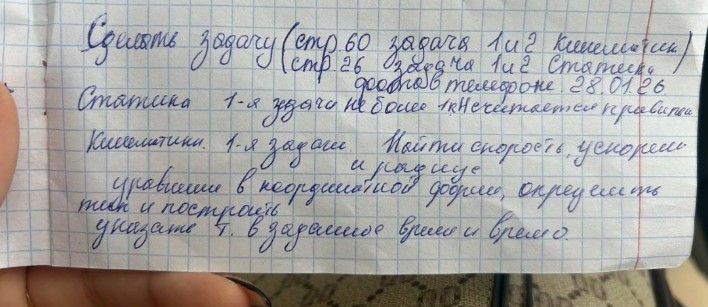 Сделать задачу (стр. 60 задача 1 и 2 Кинематик)
(стр. 26 задача 1 и 2 Статика
в телефоне 28.01.26
Статика 1-я задача не более 1 н считается правильн
Кинематика. 1-я задач. Найти скорость, ускорени
и радиус
уравнение в координатной форме, определить
и построить
указать т. в заданное время и время.